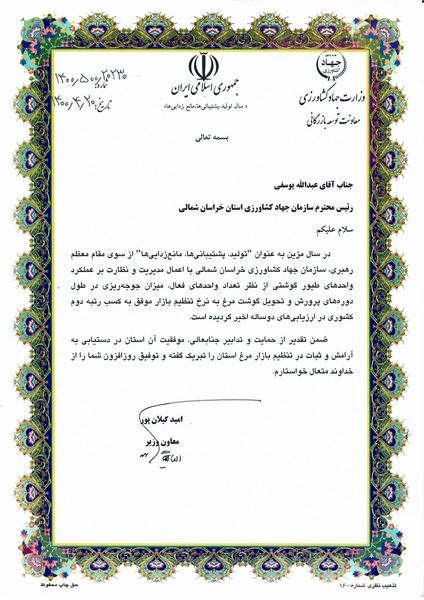 جهاد
کشاورزی
وزارت جهاد کشاورزی
معاونت توسعه بازرگانی
جمهوری اسلامی ایران
«سال تولید، پشتیبانی‌ها، مانع زدایی‌ها»
شماره: ۱۴۰۰/۵۰۰/۲۰۲۳۰
تاریخ: ۱۴۰۰/۴/۲۰
بسمه تعالی
جناب آقای عبدالله یوسفی
رئیس محترم سازمان جهاد کشاورزی استان خراسان شمالی
سلام علیکم
در سال مزین به عنوان "تولید، پشتیبانی‌ها، مانع‌زدایی‌ها" از سوی مقام معظم
رهبری، سازمان جهاد کشاورزی خراسان شمالی با اعمال مدیریت و نظارت بر عملکرد
واحدهای طیور گوشتی از نظر تعداد واحدهای فعال، میزان جوجه‌ریزی در طول
دوره‌های پرورش و تحویل گوشت مرغ به نرخ تنظیم بازار موفق به کسب رتبه دوم
کشوری در ارزیابی‌های دوساله اخیر گردیده است.
ضمن تقدیر از حمایت و تدابیر جنابعالی، موفقیت آن استان در دستیابی به
آرامش و ثبات در تنظیم بازار مرغ استان را تبریک گفته و توفیق روزافزون شما را از
خداوند متعال خواستارم.
امید گیلان پور
معاون وزیر
تذهیب نظری شماره: ۱۶۰
حق چاپ محفوظ